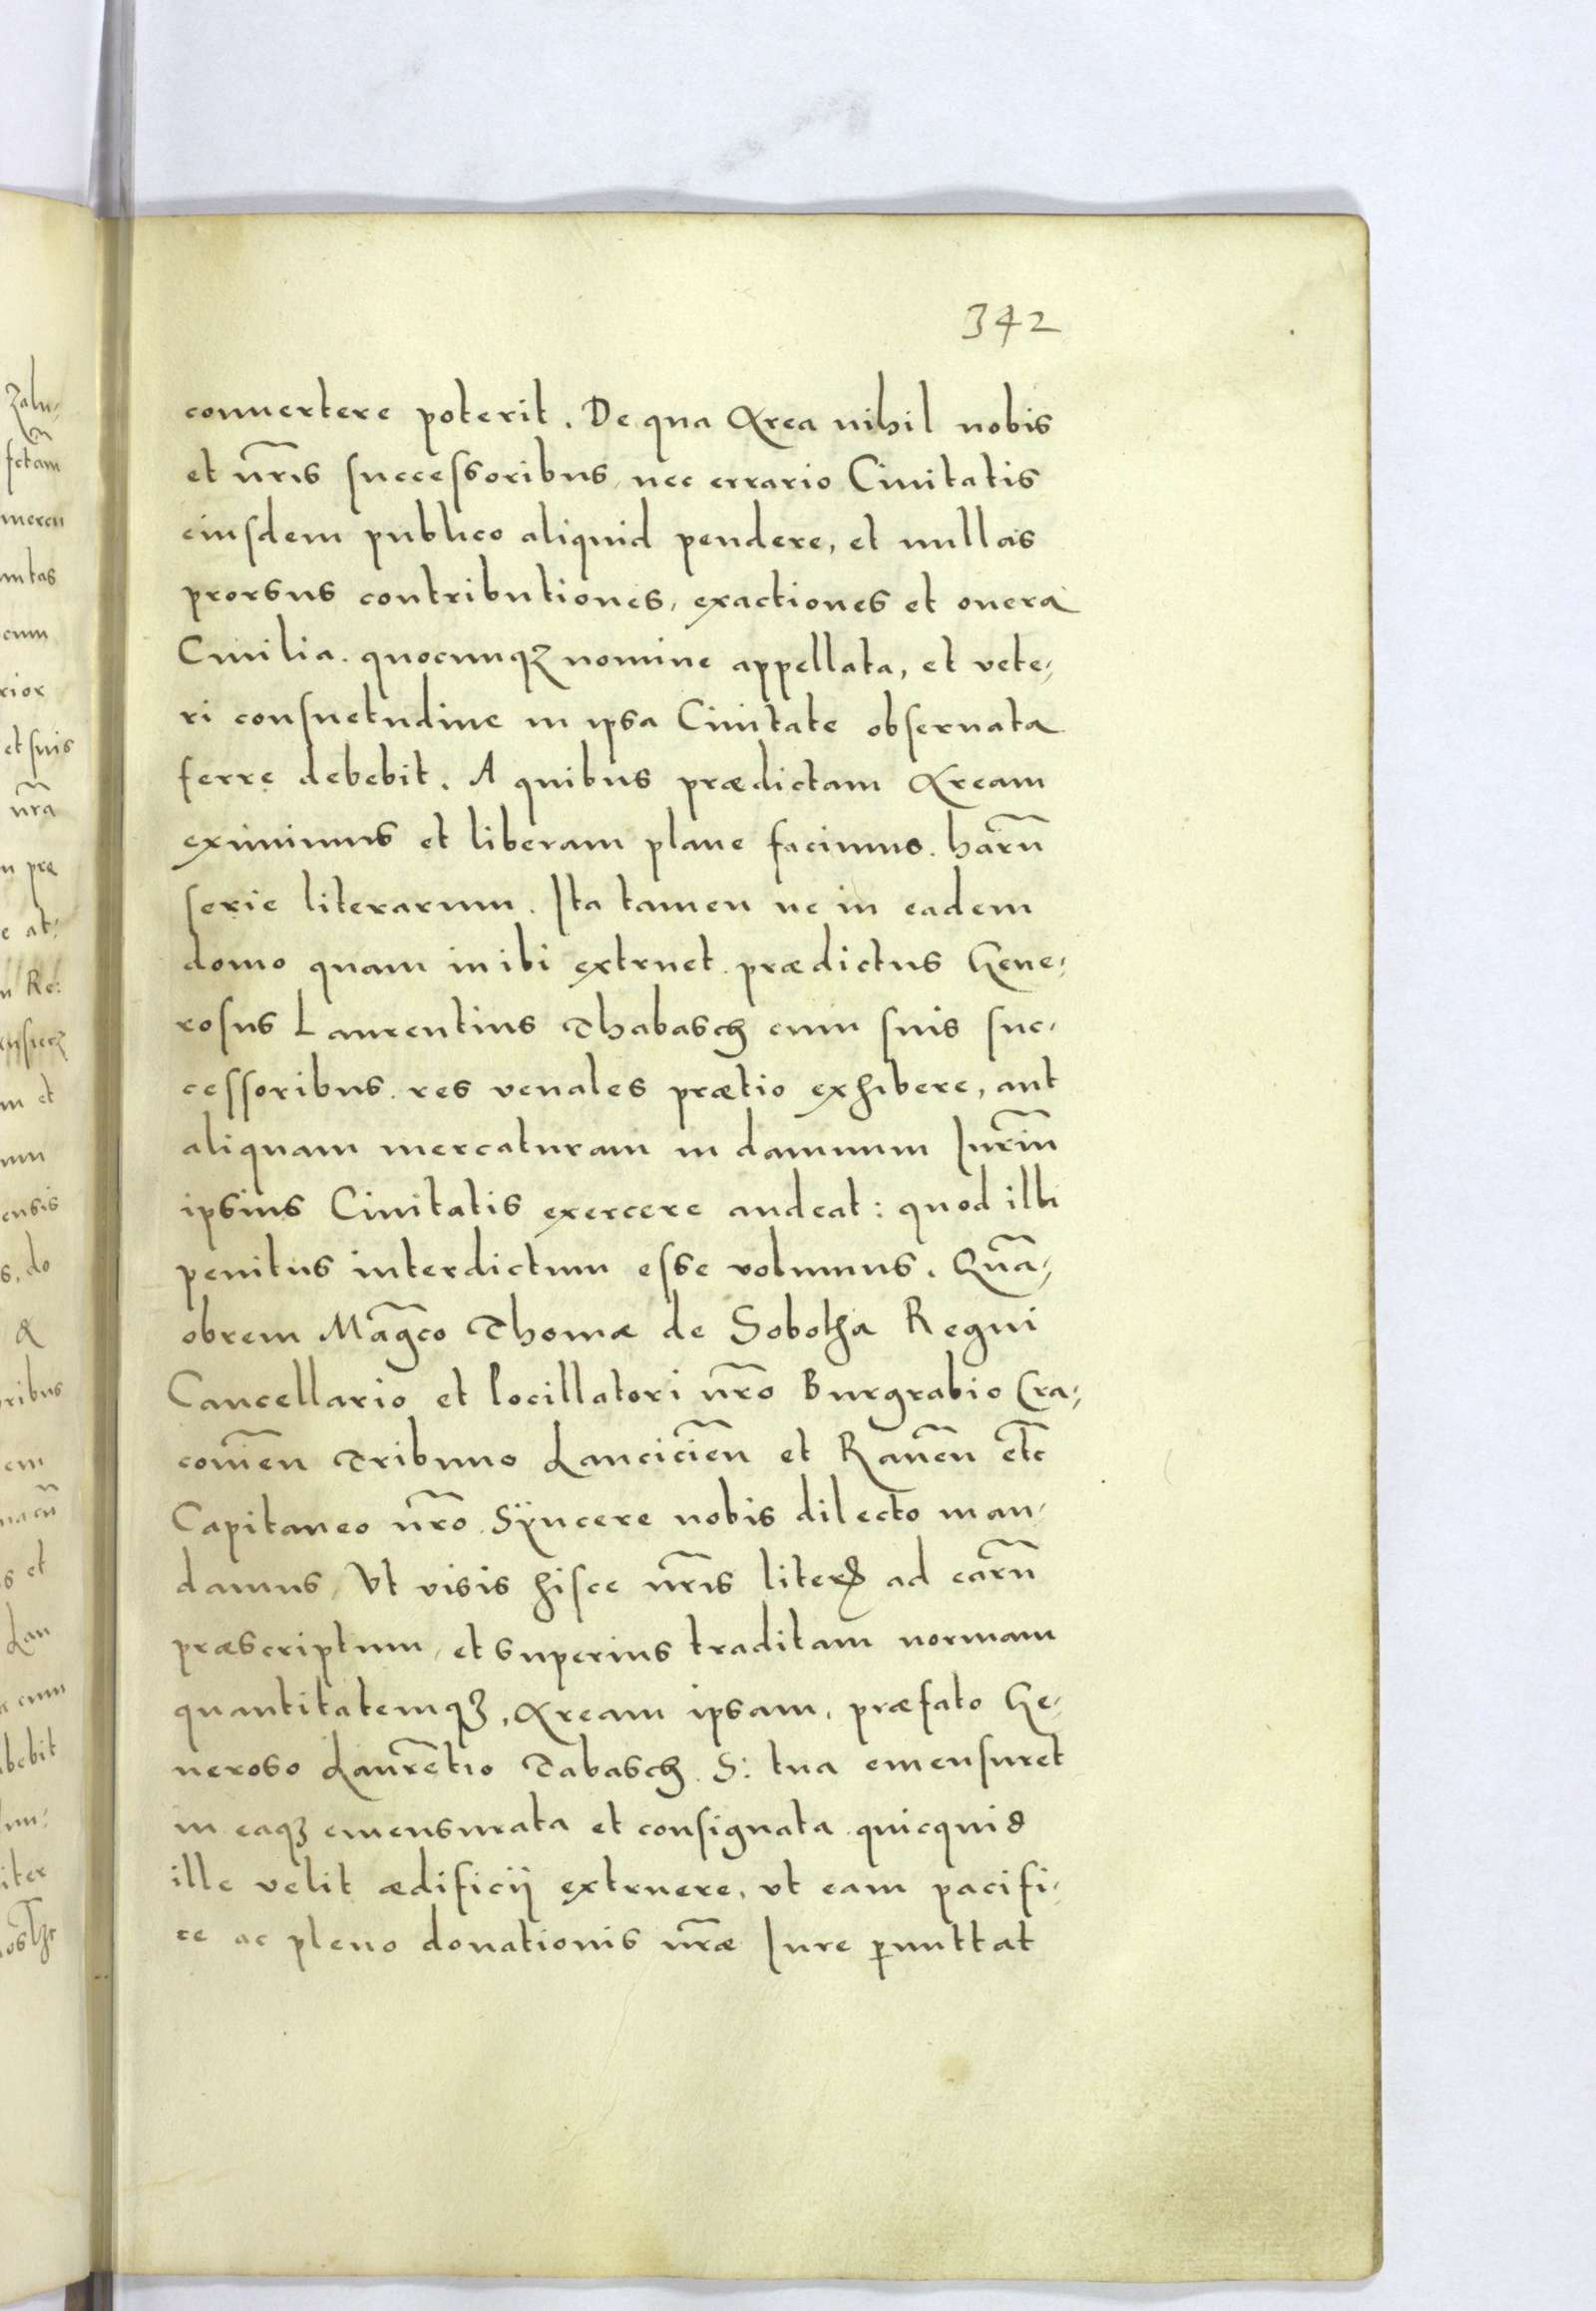 342
conuertere poterit. De qua Area nihil nobis
et nr̃is successoribus, nec errario Ciuitatis
eiusdem publico aliquid pendere, et nullas
prorsus contributiones, exactiones et onera
Ciuilia. quocunqꝫ nomine appellata, et vete-
ri consuetudine in ipsa Ciuitate obseruata
ferre debebit. A quibus prædictam Aream
eximimus et liberam plane facimus. harũ
serie literarum. Ita tamen ne in eadem
domo quam inibi extruet. prædictus Gene-
rosus Laurentius Thabasch cum suis suc-
cessoribus. res venales prætio exhibere, aut
aliquam mercaturam in damnum Iuriũ
ipsius Ciuitatis exercere audeat: quod illi
penitus interdictum esse volumus. Quã-
obrem Mag̃co Thomæ de Sobotha Regni
Cancellario et Pocillatori nr̃o Burgrabio Cra-
couieñ Tribuno Lancicieñ et Raueñ etc̃
Capitaneo nr̃o. Sÿncere nobis dilecto man-
damus, Vt visis hisce nr̃is literꝭ ad earũ
præscriptum, et superius traditam normam
quantitatemqꝫ, Aream ipsam, præfato Ge-
neroso Laurẽtio Tabasch. S: tua emensuret
in eaqꝫ emensurata et consignata quicquid
ille velit ædificij extruere, vt eam pacifi-
ce ac pleno donationis nr̃æ Iure ꝑmittat
et suis
nr̃a